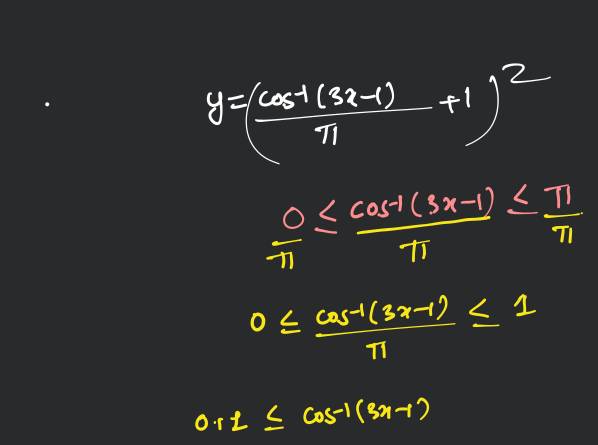 y = (cos-1(3x-1)/π + 1)^2
0/π ≤ cos-1(3x-1)/π ≤ π/π
0 ≤ cos-1(3x-1)/π ≤ 1
0+1 ≤ cos-1(3x-1)